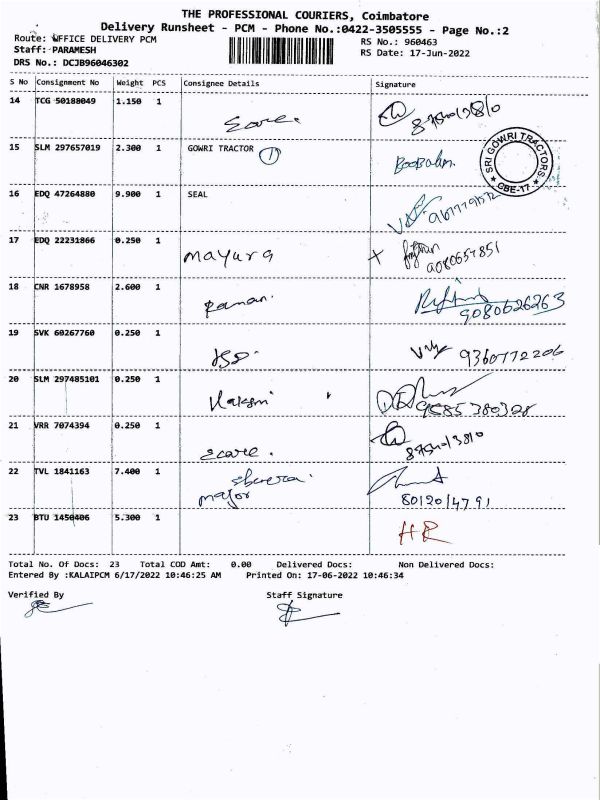 THE PROFESSIONAL COURIERS, Coimbatore
Delivery Runsheet - PCM - Phone No.:0422-3505555 - Page No.:2
Route: OFFICE DELIVERY PCM
RS No.: 960463
Staff: PARAMESH
RS Date: 17-Jun-2022
DRS No.: DCJB96046302
S No Consignment No Weight PCS Consignee Details Signature
14 TCG 50188049 1.150 1 Ecare.
15 SLM 297657019 2.300 1 GOWRI TRACTOR 1 Boobalan
SRI GOWRI TRACTORS
CBE-17
16 EDQ 47264880 9.900 1 SEAL
17 EDQ 22231866 0.250 1 Mayura
9080657851
18 CNR 1678958 2.600 1 Raman.
9080626263
19 SVK 60267760 0.250 1 9360772206
20 SLM 297485101 0.250 1 9585380328
21 VRR 7074394 0.250 1 Ecare.
22 TVL 1841163 7.400 1
major 8012014791
23 BTU 1450406 5.300 1 HR
Total No. Of Docs: 23 Total COD Amt: 0.00 Delivered Docs: Non Delivered Docs:
Entered By :KALAIPCM 6/17/2022 10:46:25 AM Printed On: 17-06-2022 10:46:34
Verified By Staff Signature